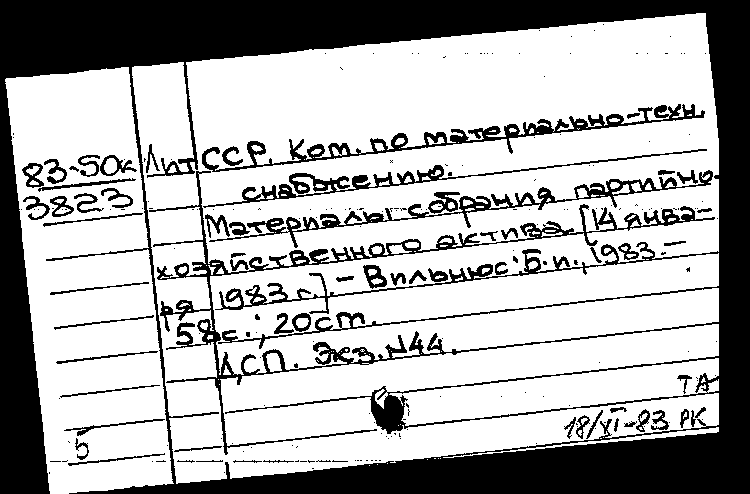 83-50к ЛитССР. Ком. по материально-техн.
3823 снабжению.
Материалы собрания партийно-
хозяйственного актива. [14 янва-
ря 1983 г.]. – Вильнюс: Б.и., 1983. –
58 с.; 20 см.
ДСП. Экз. N44.
ТА
5 18/XI-83 РК